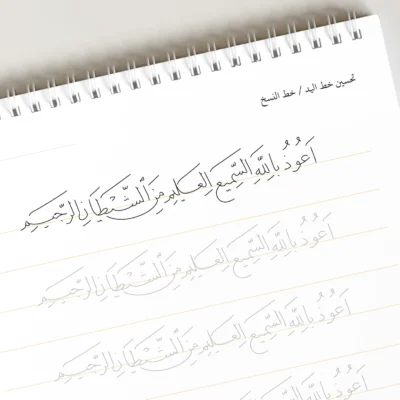 تحسين خط اليد / خط النسخ
أَعُوذُ بِاللَّهِ السَّمِيعِ العَلِيمِ مِنَ الشَّيْطَانِ الرَّجِيمِ
أَعُوذُ بِاللَّهِ السَّمِيعِ العَلِيمِ مِنَ الشَّيْطَانِ الرَّجِيمِ
أَعُوذُ بِاللَّهِ السَّمِيعِ العَلِيمِ مِنَ الشَّيْطَانِ الرَّجِيمِ
أَعُوذُ بِاللَّهِ السَّمِيعِ